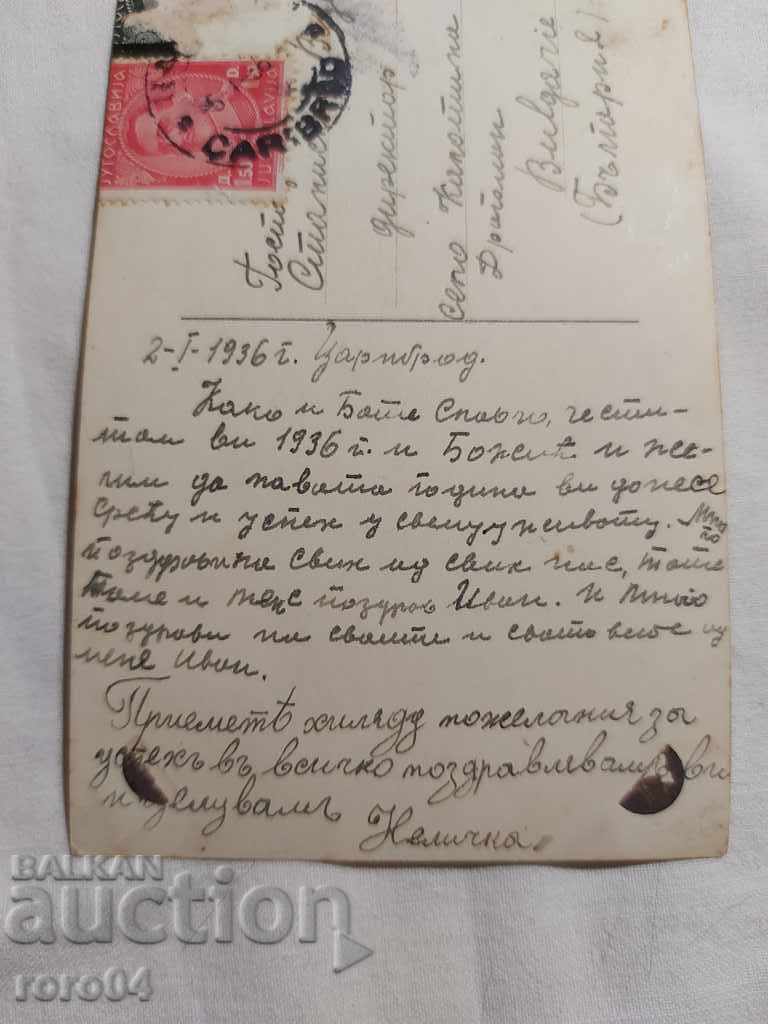 ЈУГОСЛАВИЈА
CARIBROD
Госп.
директор
село Калотина
Драгоман
Bulgarie
(България)
2-I-1936 г. Цариброд.
Како и Бате Славчо, чести-
там ви 1936 г. и Божић и же-
лим да новата година ви донесе
срећу и успех у свему у животу. Много
поздравина свих од свих нас, тате
и поздрав Иван. И много
поздрави на своите и свате от
мене Иван.
Приемете хиляду пожелания за
успехъ въ всичко поздравлевамъ ви
и целувамъ
Неличка
BALKAN
auction
roro04